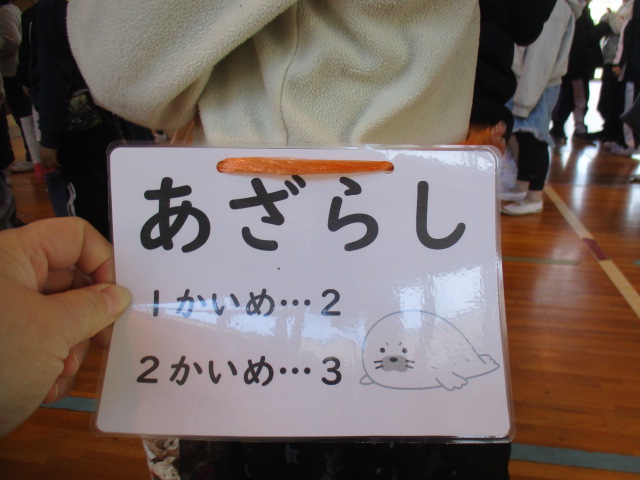 あざらし
1かいめ…2
2かいめ…3